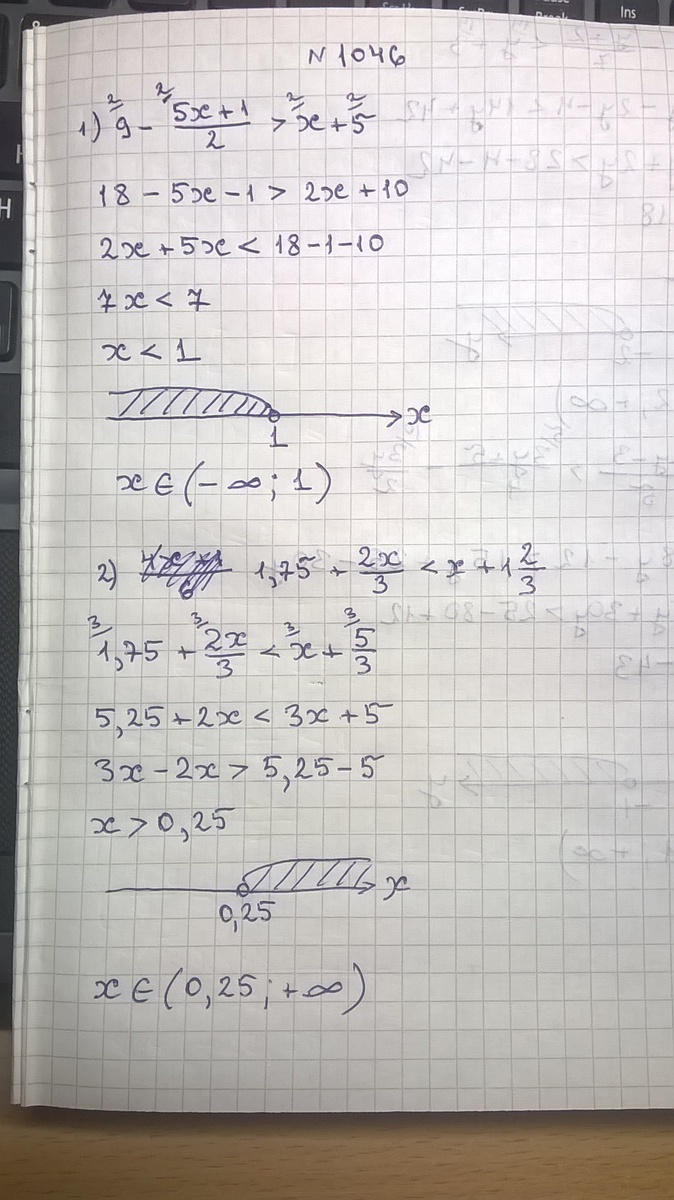 N 1046
1) 9 - (5x+1)/2 > x + 5
18 - 5x - 1 > 2x + 10
2x + 5x < 18 - 1 - 10
7x < 7
x < 1
x
1
x ∈ (- ∞; 1)
2) 1,75 + 2x/3 < x + 1 2/3
1,75 + 2x/3 < x + 5/3
5,25 + 2x < 3x + 5
3x - 2x > 5,25 - 5
x > 0,25
x
0,25
x ∈ (0,25; +∞)
Ins